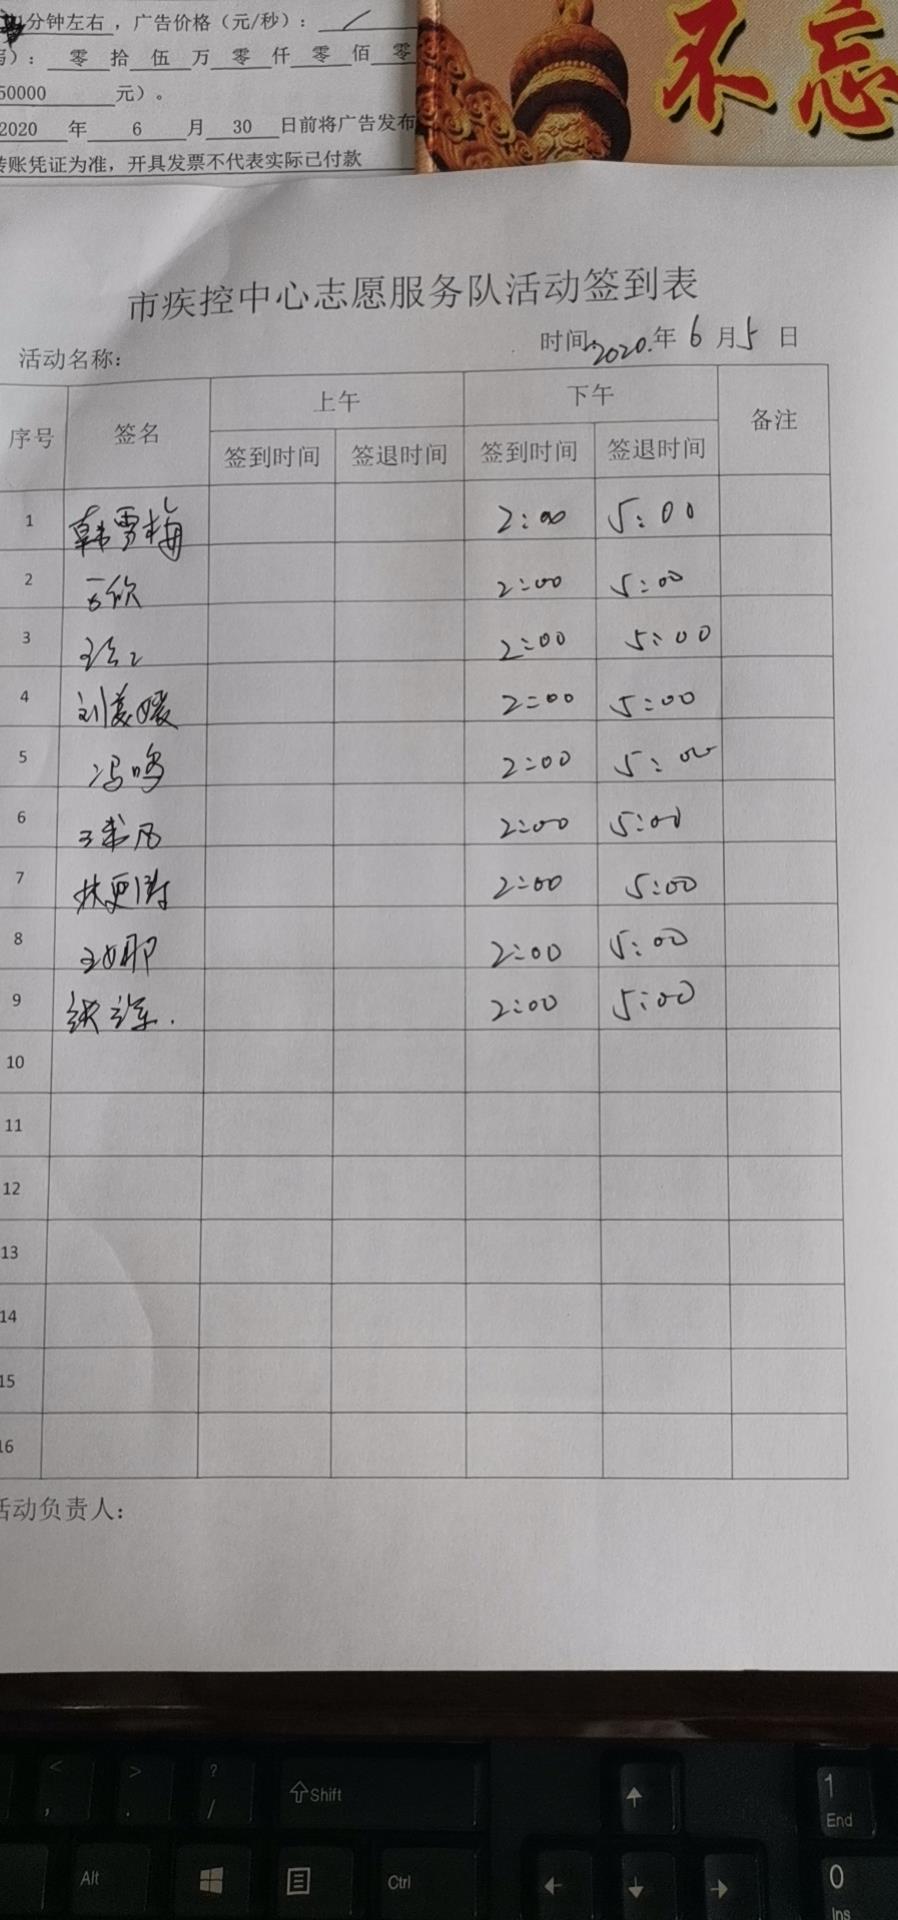 分钟左右，广告价格（元/秒）： /
）： 零 拾 伍 万 零 仟 零 佰 零
50000 元）。
2020 年 6 月 30 日前将广告发布
转账凭证为准，开具发票不代表实际已付款
不忘
市疾控中心志愿服务队活动签到表
时间:2020.年6月5日
活动名称：
序号 签名 上午 下午 备注
签到时间 签退时间 签到时间 签退时间
1 韩雪梅 2:00 5:00
2 2:00 5:00
3 2:00 5:00
4 刘美媛 2:00 5:00
5 冯鸣 2:00 5:00
6 2:00 5:00
7 2:00 5:00
8 2:00 5:00
9 2:00 5:00
10
11
12
13
14
15
16
活动负责人：
< > ? ⇧Shift ↑ 1
, . / End
Alt Ctrl ← ↓ → 0
Ins